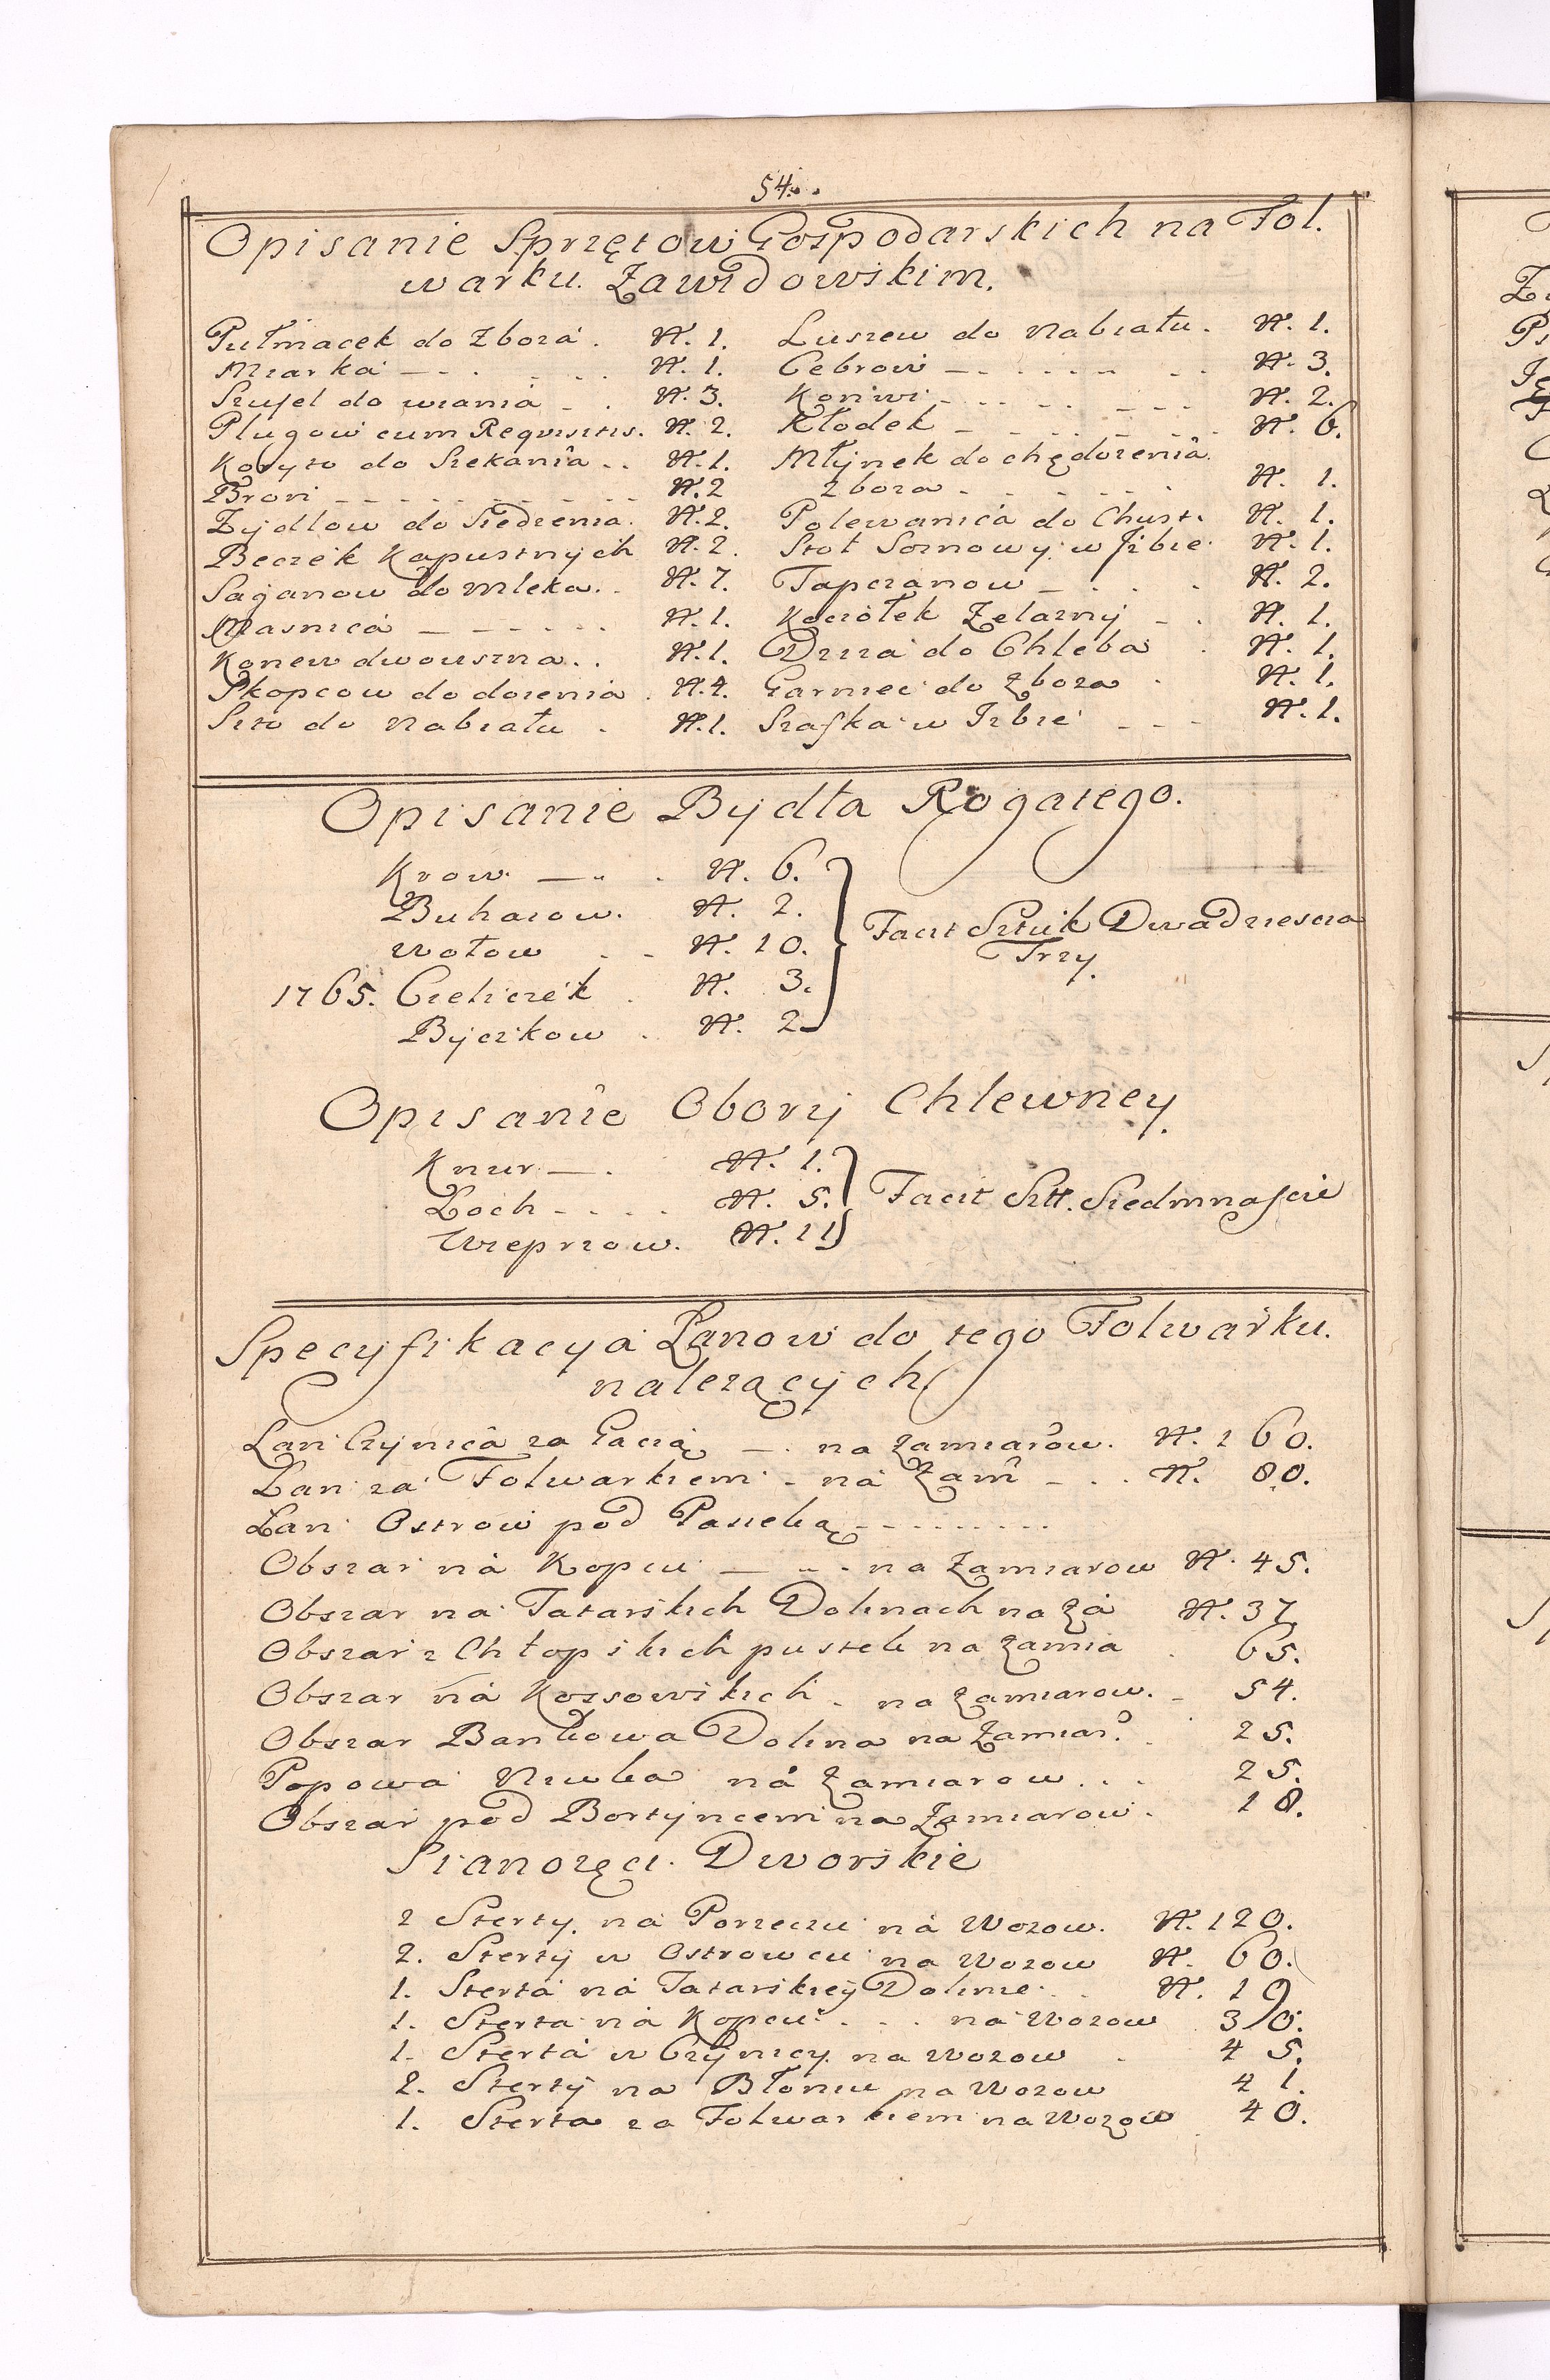 54.
Opisanie Sprzętow Gospodarskich na Fol.
warku Zawidowskim.
Pułmacek do Zboza . N. 1.
Miarka N. 1.
Szufel do wiania N. 3.
Plugow cum Requisitis. N. 2.
Koryto do Siekania N. 1.
Bron N. 2
Zydlow do Siedzenia. N. 2.
Beczek Kapustnych N. 2.
Saganow do Mleka N. 7.
Masnica N. 1.
Konew dwouszna N. 1.
Skopcow do dojenia N. 4.
Sito do Nabiału N. 1.
Luszew do Nabiału. N. 1.
Cebrow N. 3.
Konwi N. 2.
Kłodek N. 6.
Młynek do chędozenia
zboza N. 1.
Polewanica do Chust. N. 1.
Stoł Sosnowy w Jzbie N. 1.
Tapczanow N. 2.
Kociołek Zelazny N. 1.
Dzieza do Chleba N. 1.
Garniec do Zboza N. 1.
Szafka w Izbie N. 1.
Opisanie Bydła Rogatego.
Krow N. 6.
Buhaiow. N. 2.
Wołow N. 10.
1765. Cieliczek N. 3.
Byczkow N. 2
Facit Sztuk Dwadziescia
Trzy.
Opisanie Obory Chlewney.
Knur N. 1.
Loch N. 5.
Wieprzow. N. 11
Facit Szt. Siedmnaście
Specyfikacya Łanow do tego Folwarku.
nalezących
Łan Czynica za Gacią na Zamiarow. N. 160.
Łan za Folwarkiem na Zam N. 80.
Łan Ostrow pod Pasieką
Obszar na Kopcu na Zamiarow N. 45.
Obszar na Tatarskich Dolinach na Za N. 37
Obszar z Chłopskich pustek na Zamia 65.
Obszar na Kossowskich na Zamiarow. 54.
Obszar Bankowa Dolina na Zamiar? 25.
Popowa Niwka na Zamiarow 25.
Obszar pod Bortyncem na Zamiarow. 18.
Sianozęci Dworskie
2 Sterty na Porzeczu na Wozow. N. 120.
2. Sterty w Ostrowcu na Wozow N. 60.
1. Sterta na Tatarskiey Dolinie N. 19
1. Sterta na Kopcu na Wozow 30.
1. Sterta w Czynicy na Wozow 45.
2. Sterty na Błoniu na Wozow 41.
1. Sterta za Folwarkiem na Wozow 40.